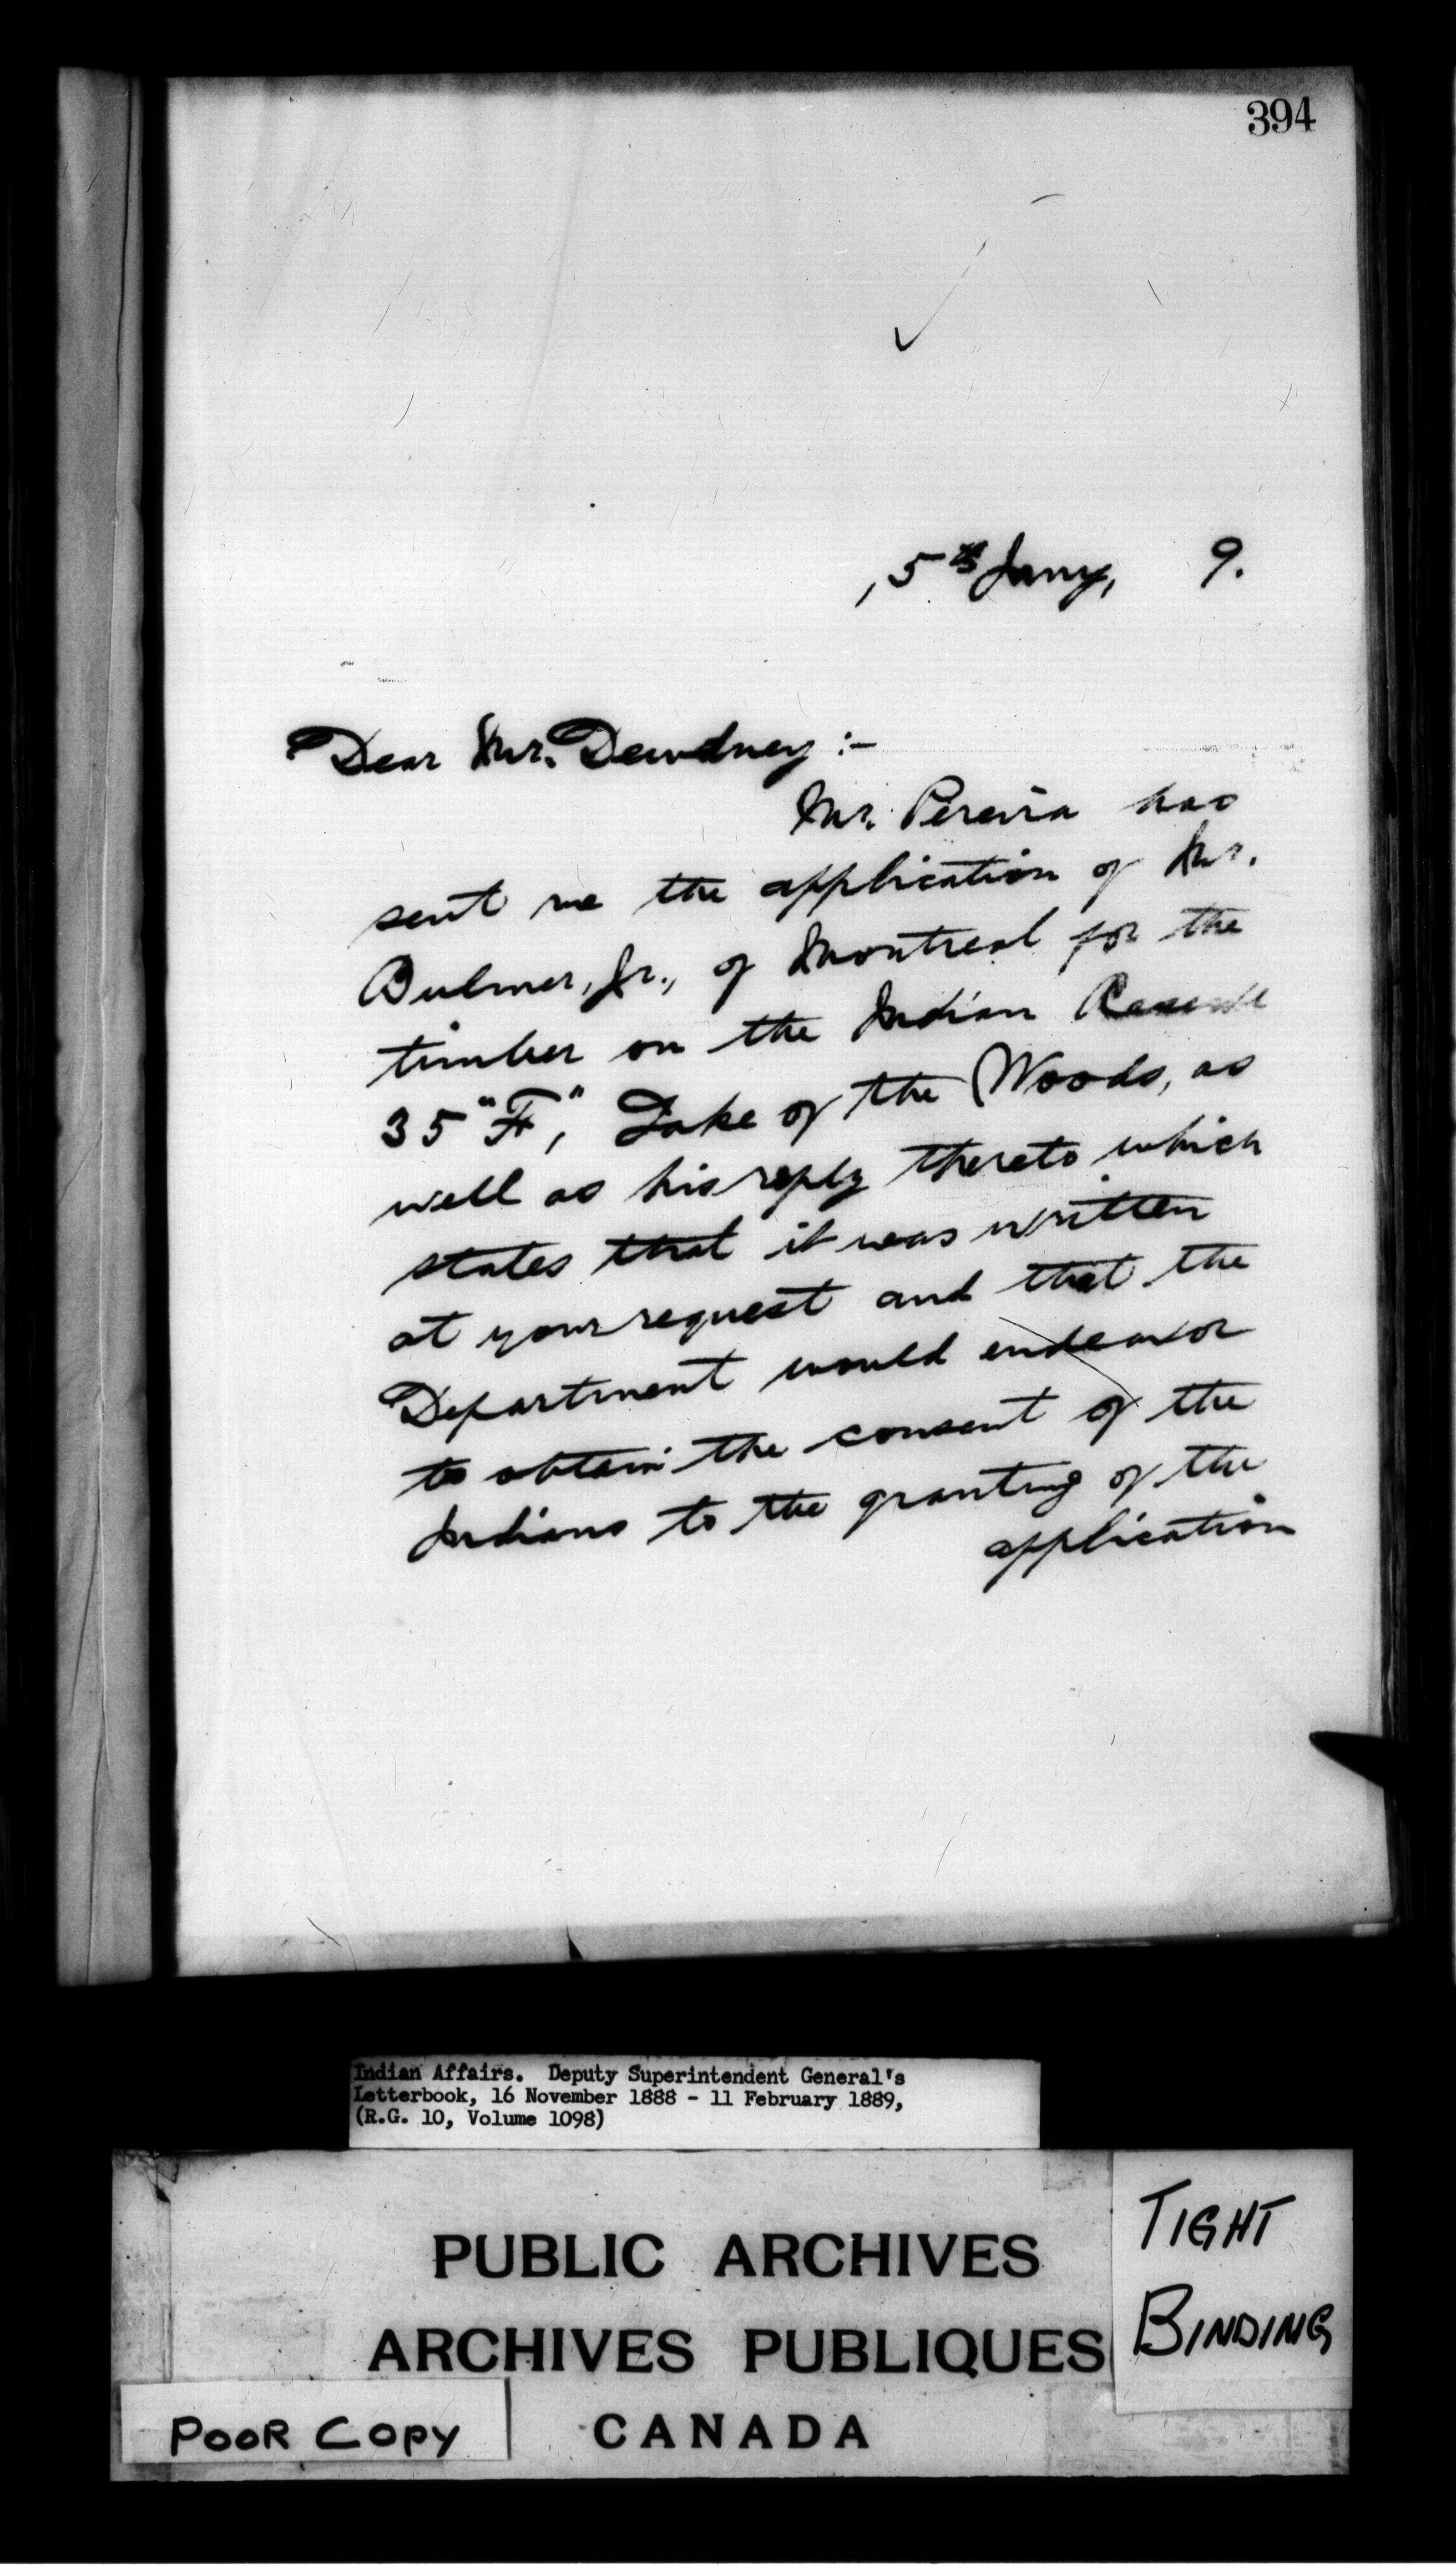 394
15th Jany, 9.
Dear Mr. Dewdney :-
Mr. Pereira has
sent me the application of Mr.
Bulmer, Jr., of Montreal for the
timber on the Indian Reserve
35 "F", Lake of the Woods, as
well as his reply thereto which
states that it was written
at your request and that the
Department would endeavor
to obtain the consent of the
Indians to the granting of the
application
Indian Affairs. Deputy Superintendent General's
Letterbook, 16 November 1888 - 11 February 1889,
(R.G. 10, Volume 1098)
PUBLIC ARCHIVES
ARCHIVES PUBLIQUES
CANADA
TIGHT
BINDING
POOR COPY